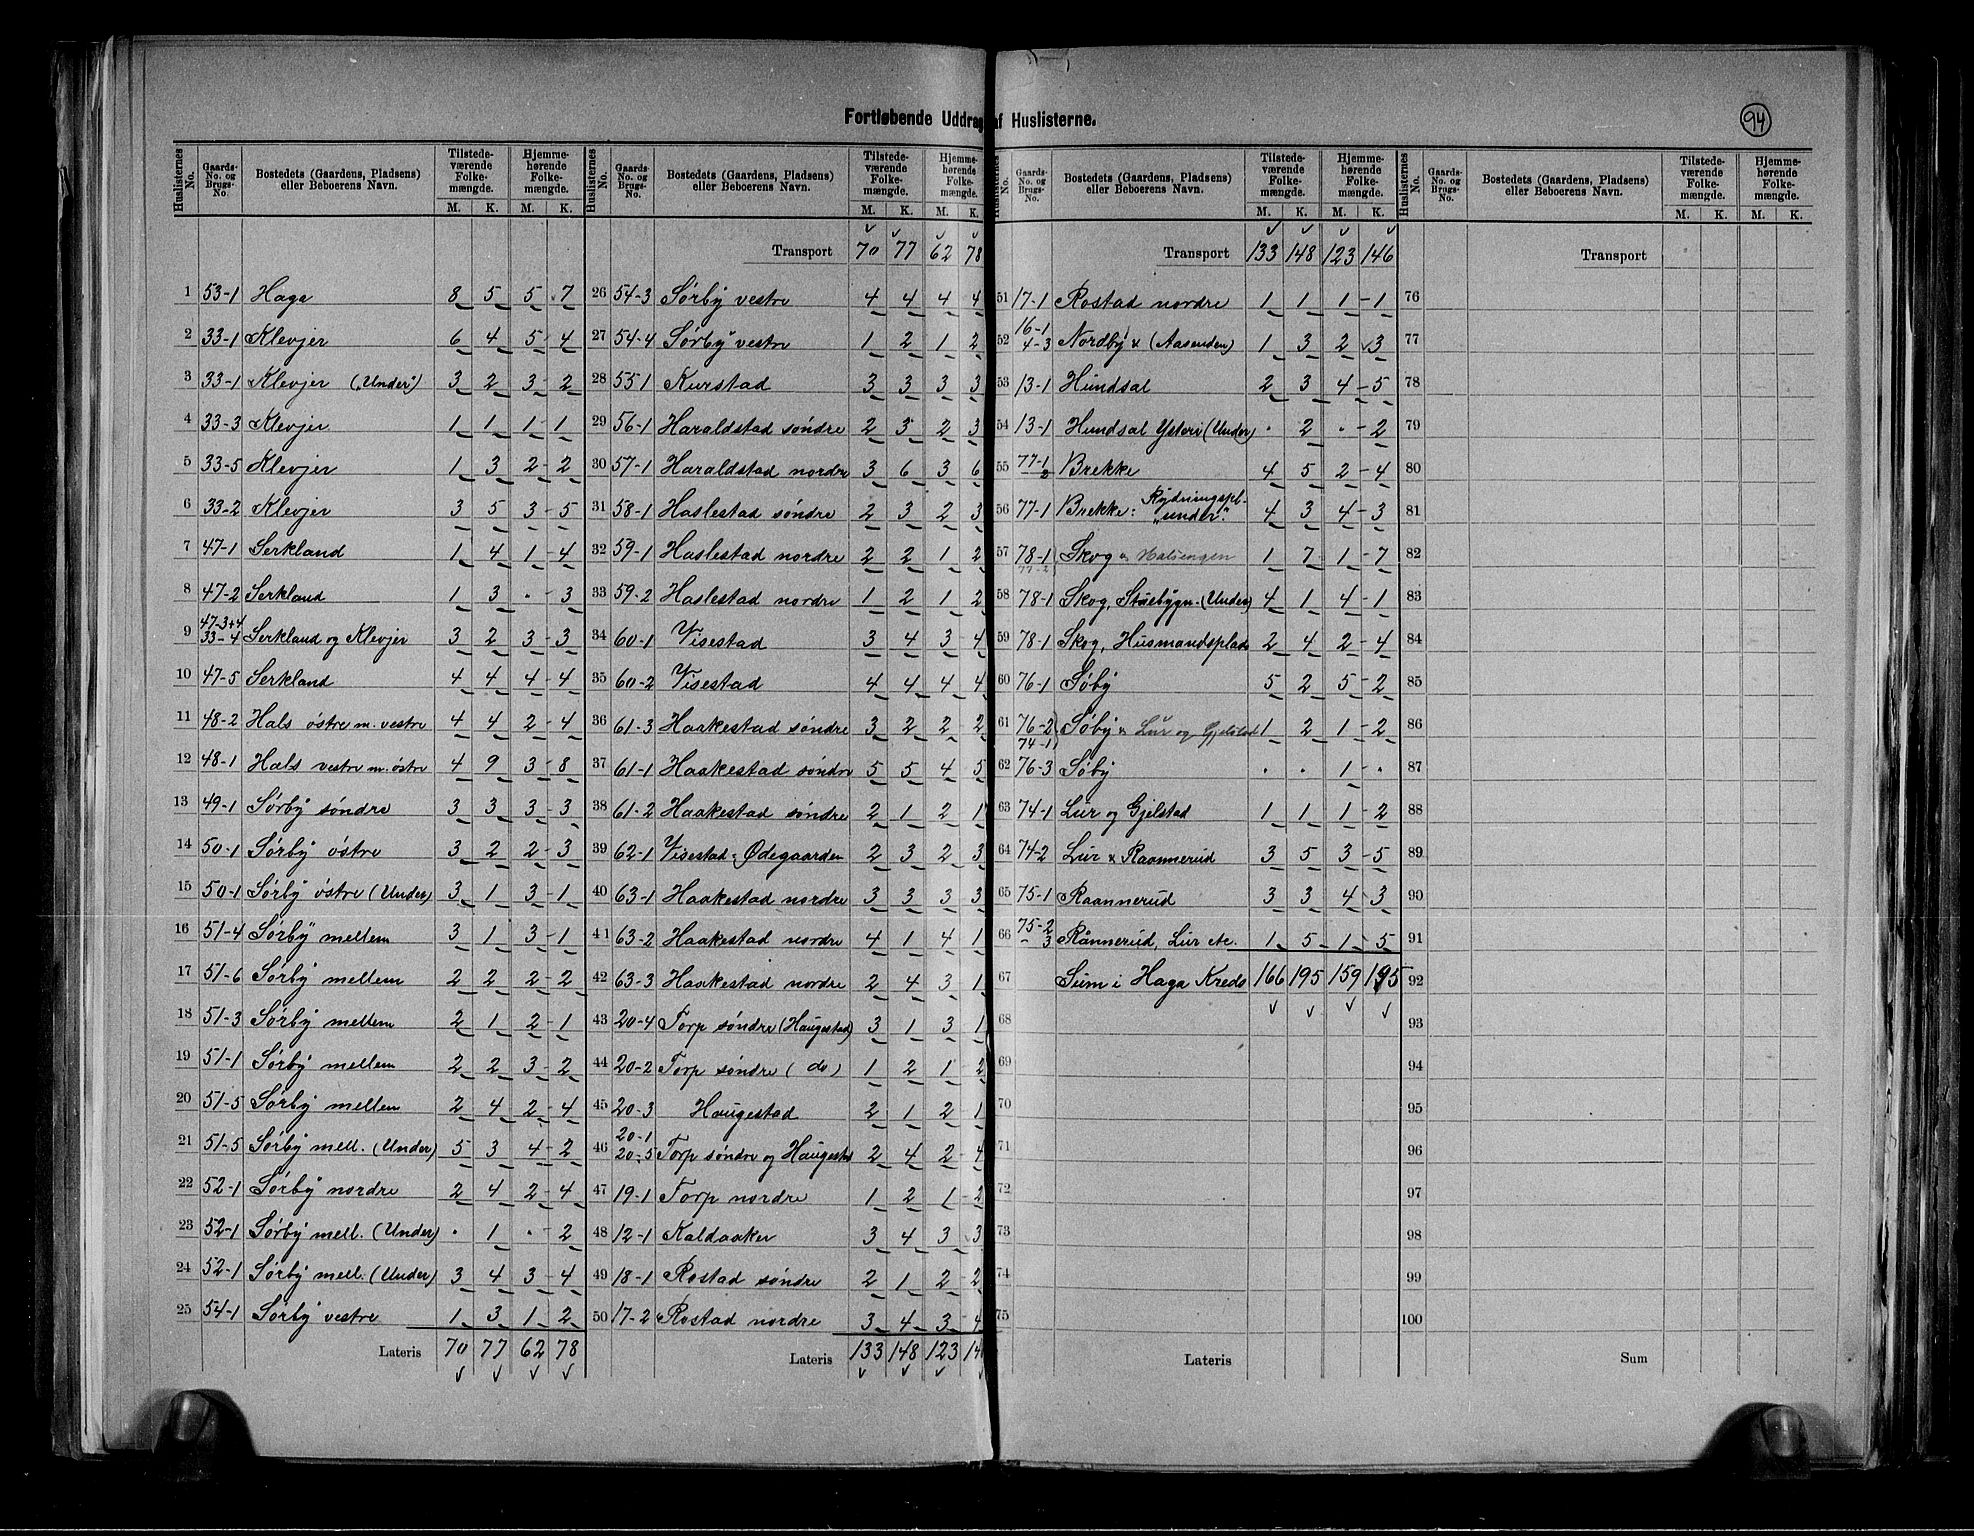 94
Fortløbende Uddrag af Huslisterne.
Huslisternes No. Gaards-No. og Brugs-No. Bostedets (Gaardens, Pladsens) eller Beboerens Navn. Tilstedeværende Folkemængde. M. K. Hjemmehørende Folkemængde. M. K.
1 53-1 Haga 8 5 5 7
2 33-1 Klevjer 6 4 5 4
3 33-1 Klevjer ("Under") 3 2 3 2
4 33-3 Klevjer 1 1 1 1
5 33-5 Klevjer 1 3 2 2
6 33-2 Klevjer 3 5 3 5
7 47-1 Serkland 1 4 1 4
8 47-2 Serkland 1 3 · 3
9 47-3+4 33-4 Serkland og Klevjer 3 2 3 3
10 47-5 Serkland 4 4 4 4
11 48-2 Hals østre m. vestre 4 4 2 4
12 48-1 Hals vestre m. østre 4 9 3 8
13 49-1 Sørby søndre 3 3 3 3
14 50-1 Sørby østre 3 2 2 3
15 50-1 Sørby østre (Under) 3 1 3 1
16 51-4 Sørby mellem 3 1 3 1
17 51-6 Sørby mellem 2 2 2 2
18 51-3 Sørby mellem 2 1 2 1
19 51-1 Sørby mellem 2 2 3 2
20 51-5 Sørby mellem 2 4 2 4
21 51-5 Sørby mell. (Under) 5 3 4 2
22 52-1 Sørby nordre 2 4 2 4
23 52-1 Sørby mell. (Under) · 1 · 2
24 52-1 Sørby mell. (Under) 3 4 3 4
25 54-1 Sørby vestre 1 3 1 2
Lateris 70 77 62 78
Huslisternes No. Gaards-No. og Brugs-No. Bostedets (Gaardens, Pladsens) eller Beboerens Navn. Tilstedeværende Folkemængde. M. K. Hjemmehørende Folkemængde. M. K.
Transport 70 77 62 78
26 54-3 Sørby vestre 4 4 4 4
27 54-4 Sørby vestre 1 2 1 2
28 55-1 Kurstad 3 3 3 3
29 56-1 Haraldstad søndre 2 3 2 3
30 57-1 Haraldstad nordre 3 6 3 6
31 58-1 Haslestad søndre 2 3 2 3
32 59-1 Haslestad nordre 2 2 1 2
33 59-2 Haslestad nordre 1 2 1 2
34 60-1 Visestad 3 4 3 4
35 60-2 Visestad 4 4 4 4
36 61-3 Haakestad søndre 3 2 2 2
37 61-1 Haakestad søndre 5 5 4 5
38 61-2 Haakestad søndre 2 1 2 1
39 62-1 Visestad, Ødegaarden 2 3 2 3
40 63-1 Haakestad nordre 3 3 3 3
41 63-2 Haakestad nordre 4 1 4 1
42 63-3 Haakestad nordre 2 4 3 1
43 20-4 Torp søndre (Haugestad) 3 1 3 1
44 20-2 Torp søndre (do) 1 2 1 2
45 20-3 Haugestad 2 1 2 1
46 20-1 20-5 Torp søndre og Haugestad 2 4 2 4
47 19-1 Torp nordre 1 2 1 2
48 12-1 Kaldaaker 3 4 3 3
49 18-1 Rostad søndre 2 1 2 2
50 17-2 Rostad nordre 3 4 3 4
Lateris 133 148 123 14
Huslisternes No. Gaards-No. og Brugs-No. Bostedets (Gaardens, Pladsens) eller Beboerens Navn. Tilstedeværende Folkemængde. M. K. Hjemmehørende Folkemængde. M. K.
Transport 133 148 123 146
51 17-1 Rostad nordre 1 1 1 1
52 16-1 4-3 Nordby & (Aasenden) 1 3 2 3
53 13-1 Hundsal 2 3 4 5
54 13-1 Hundsal Ysteri (Under) · 2 · 2
55 77-1 2 Brekke 4 5 2 4
56 77-1 Brekke: Rydningspl. "under" 4 3 4 3
57 78-1 77-2 Skog & Halsengen 1 7 1 7
58 78-1 Skog, Stuebygn. (Under) 4 1 4 1
59 78-1 Skog, Husmandsplads 2 4 2 4
60 76-1 Søby 5 2 5 2
61 76-2 74-1 Søby & Lur og Gjelstad 1 2 1 2
62 76-3 Søby · · 1 ·
63 74-1 Lur og Gjelstad 1 1 1 2
64 74-2 Lur & Raannerud 3 5 3 5
65 75-1 Raannerud 3 3 4 3
66 75-2 - 3 Rånnerud, Lur etc. 1 5 1 5
67 Sum i Haga Kreds 166 195 159 195
68
69
70
71
72
73
74
75
Lateris
Huslisternes No. Gaards-No. og Brugs-No. Bostedets (Gaardens, Pladsens) eller Beboerens Navn. Tilstedeværende Folkemængde. M. K. Hjemmehørende Folkemængde. M. K.
Transport
76
77
78
79
80
81
82
83
84
85
86
87
88
89
90
91
92
93
94
95
96
97
98
99
100
Sum